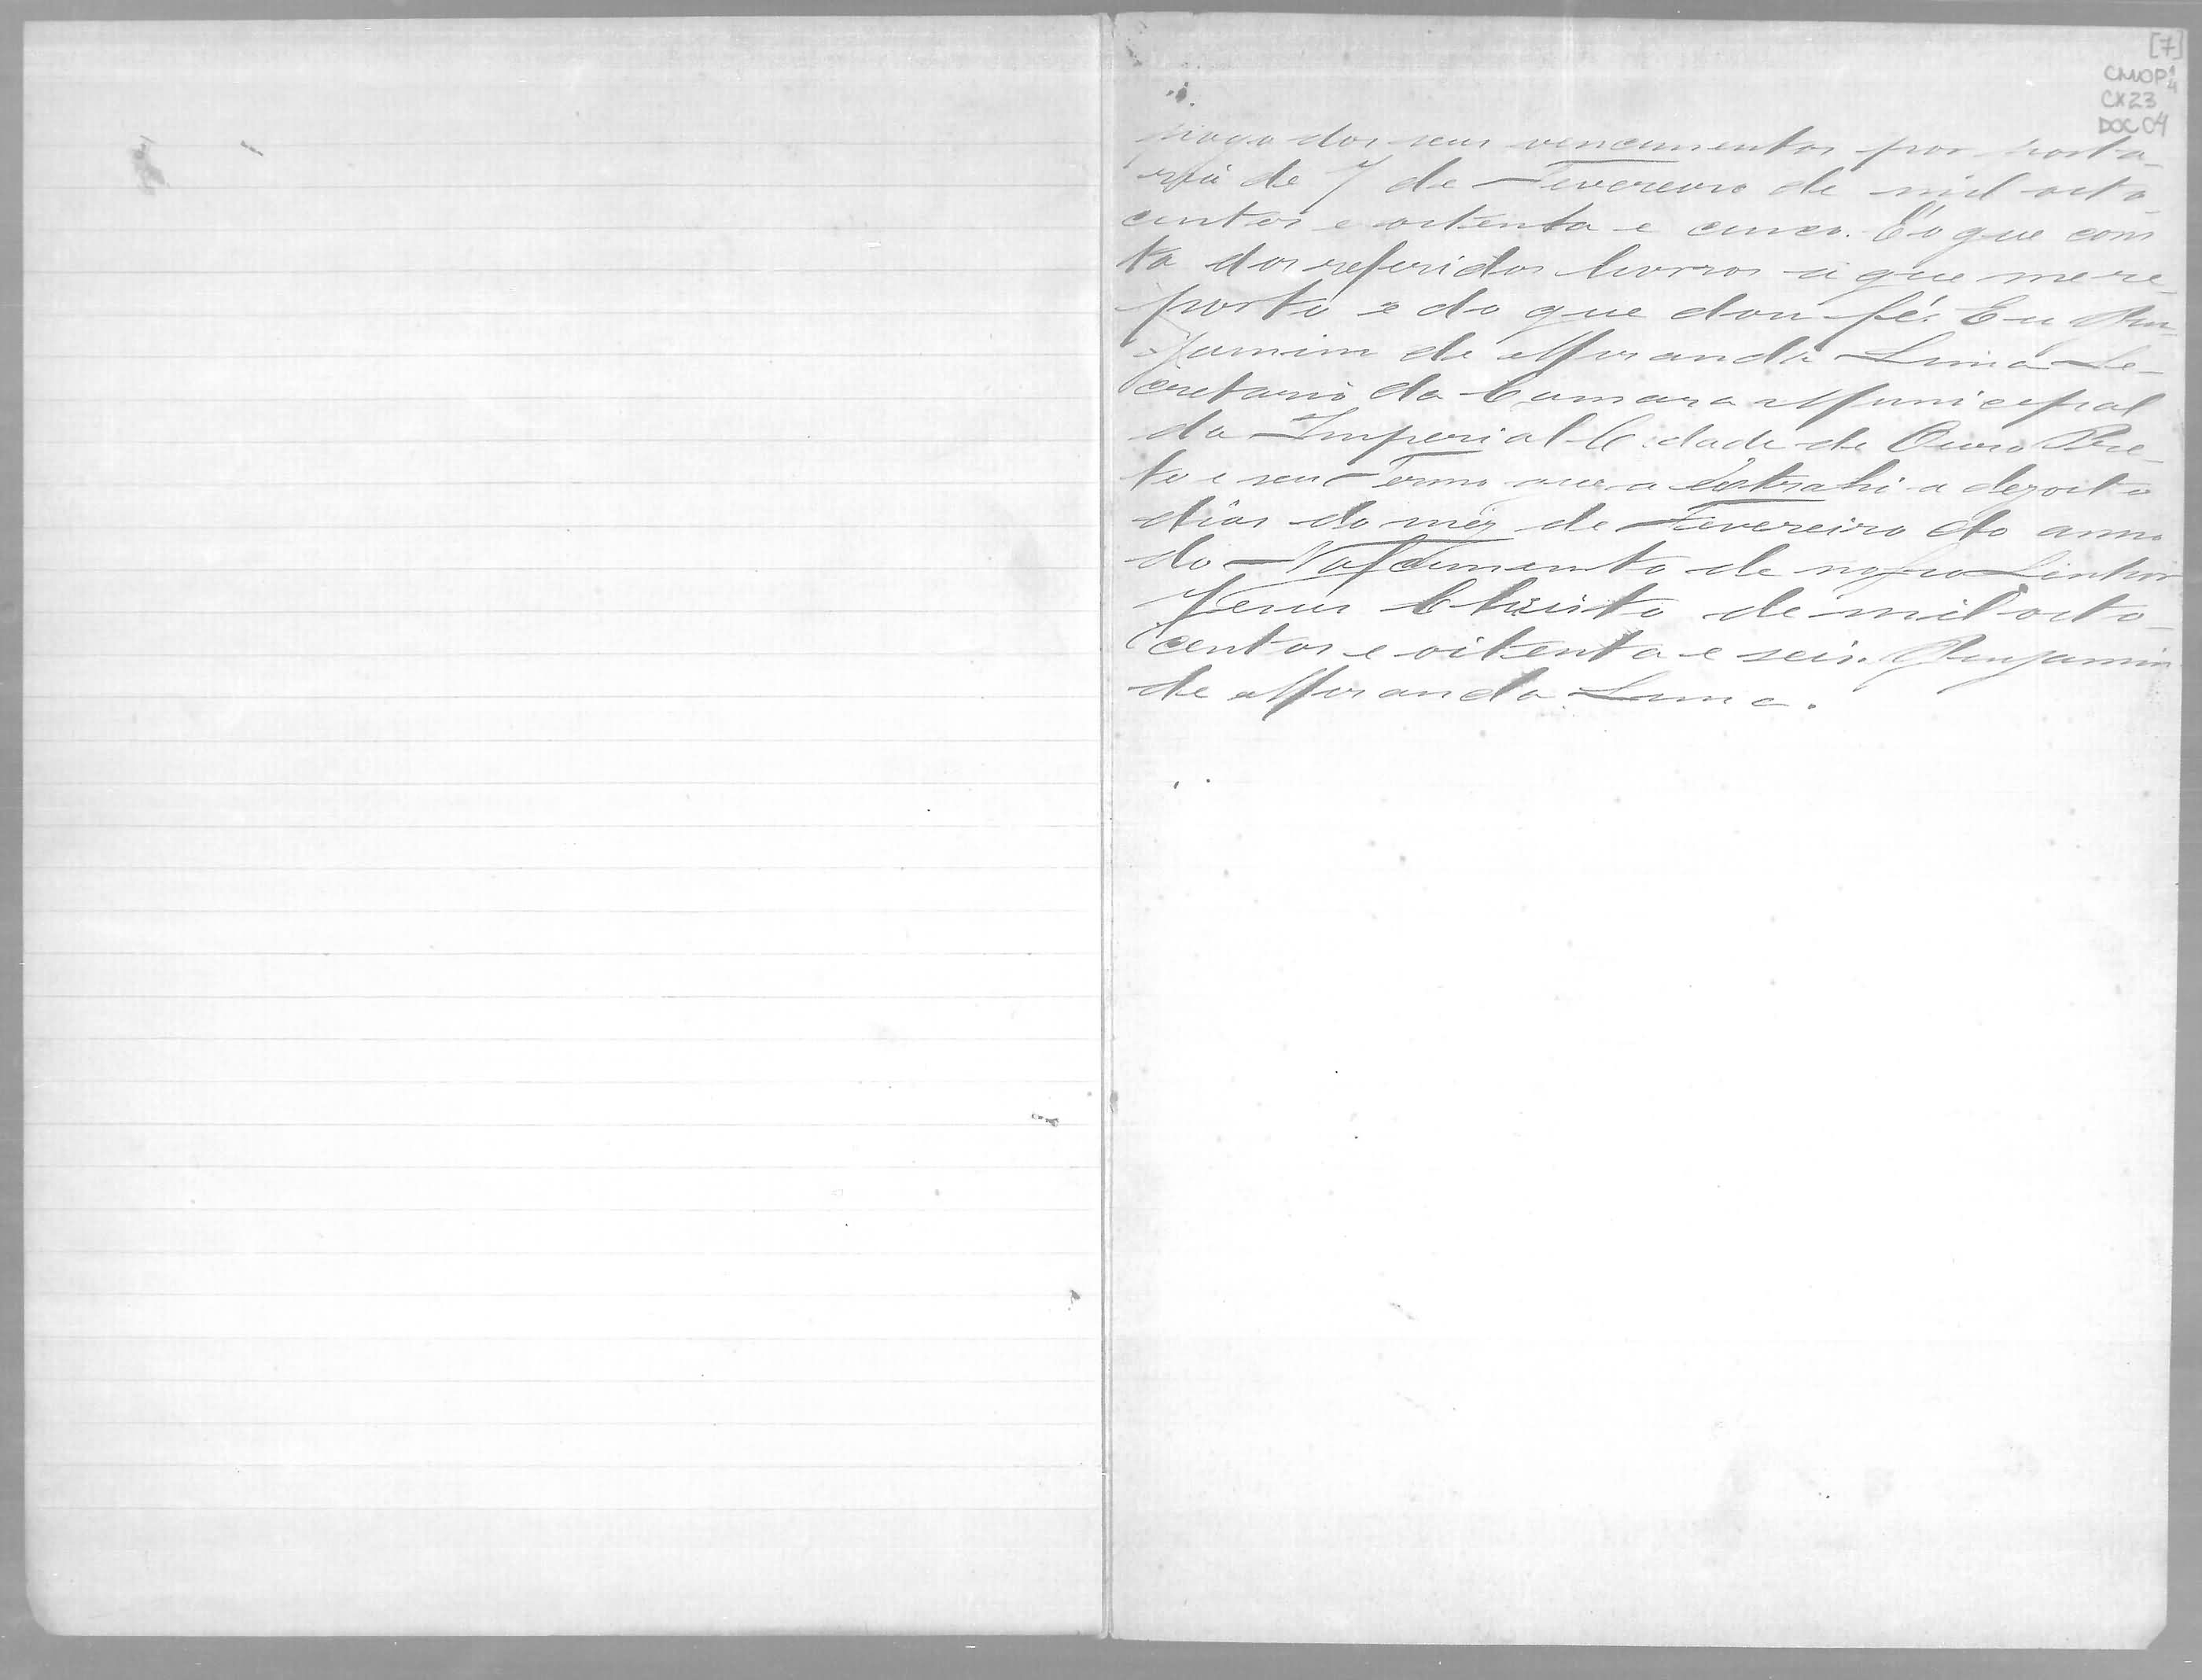 [7]
CMOP 1/4
CX23
DOC 04
pago dos seus vencimentos por porta-
ria de 7 de Fevereiro de mil oito
centos e oitenta e cinco. É o que cons
ta dos referidos livros a que me re-
porto e do que dou fé. Eu Ben-
jamim de Miranda Lima Se-
cretario da Camara Municipal
da Imperial Cidade de Ouro Pre-
to e seu Termo que a extrahi a dezoito
dias do mez de Fevereiro do anno
do Nascimento de nosso Senhor
Jesus Christo de mil oito-
centos e oitenta e seis. Benjamim
de Miranda Lima.